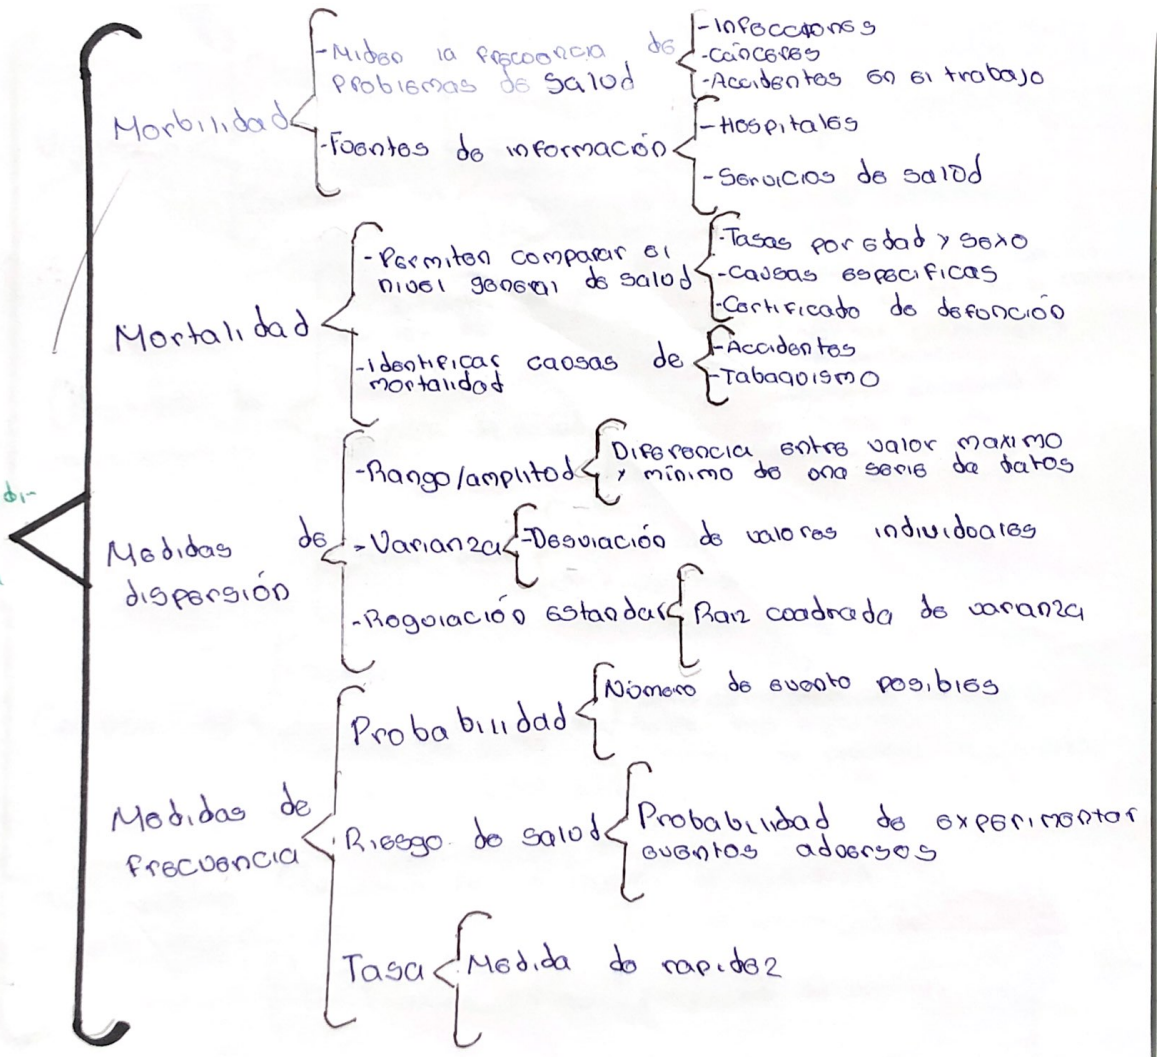 Morbilidad
-Miden la frecuencia de
problemas de salud
-Infecciones
-Cánceres
-Accidentes en el trabajo
-Fuentes de información
-Hospitales
-Servicios de salud
Mortalidad
-Permiten comparar el
nivel general de salud
-Tasas por edad y sexo
-causas especificas
-Certificado de defunción
-Identificar causas de
mortalidad
-Accidentes
-Tabaquismo
Medidas de
dispersión
-Rango/amplitud
Diferencia entre valor maximo
y mínimo de una serie de datos
-Varianza
-Desviación de valores individuales
-Regulación estandar
Raiz cuadrada de varanza
Medidas de
frecuencia
Probabilidad
Número de evento posibles
Riesgo de salud
Probabilidad de experimentar
eventos adversos
Tasa
Medida de rapidez